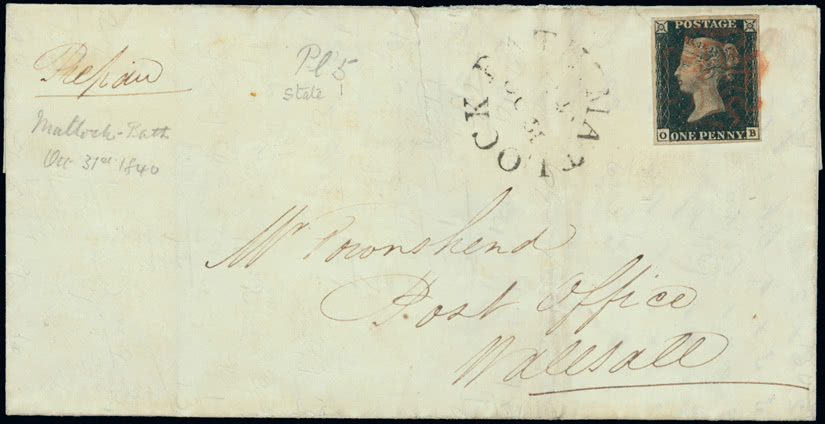 Prepaid
Pl 5
state 1
Matlock-Bath
Oct 31st 1840
POSTAGE
O ONE PENNY B
Mr Townshend
Post Office
Walesall